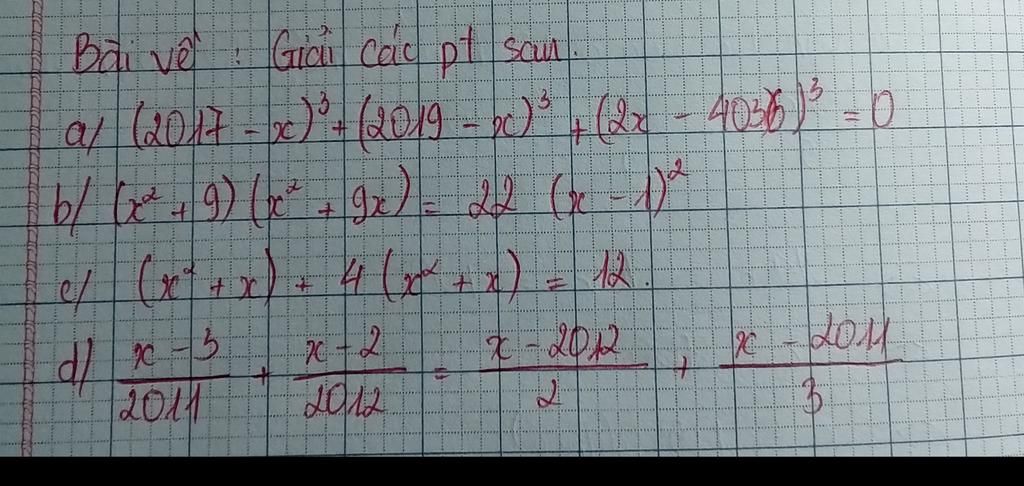 Bài về : Giải các pt sau.
a/ (2017 - x)³ + (2019 - x)³ + (2x - 4036)³ = 0
b/ (x² + 9)(x² + 9x) = 22 (x - 1)²
c/ (x² + x) + 4 (x² + x) = 12.
d/ \frac{x - 3}{2011} + \frac{x - 2}{2012} = \frac{x - 2012}{2} + \frac{x - 2011}{3}